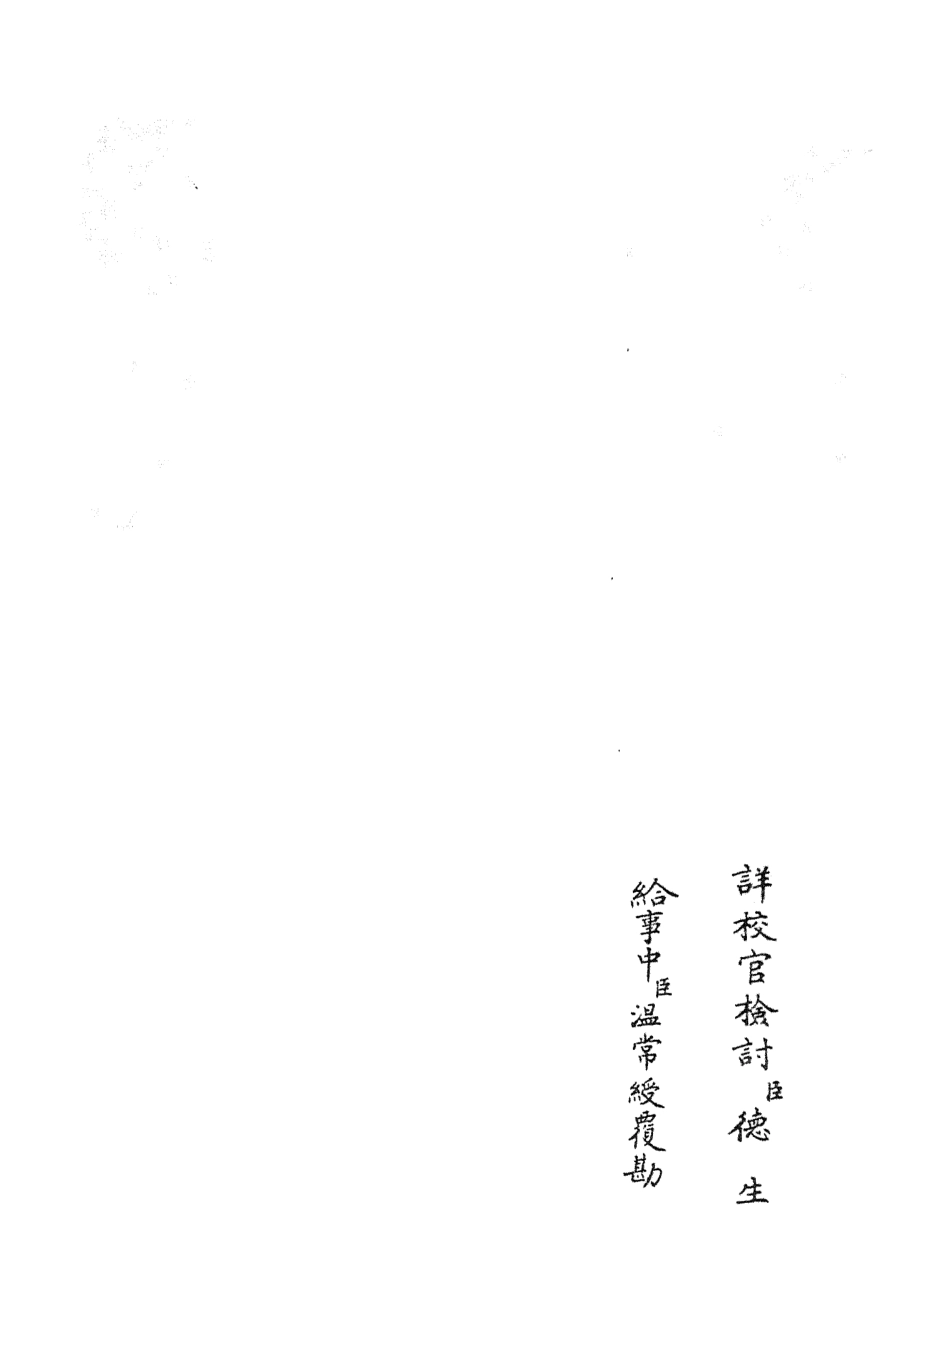 詳校官檢討臣德生
給事中臣溫常綬覆勘